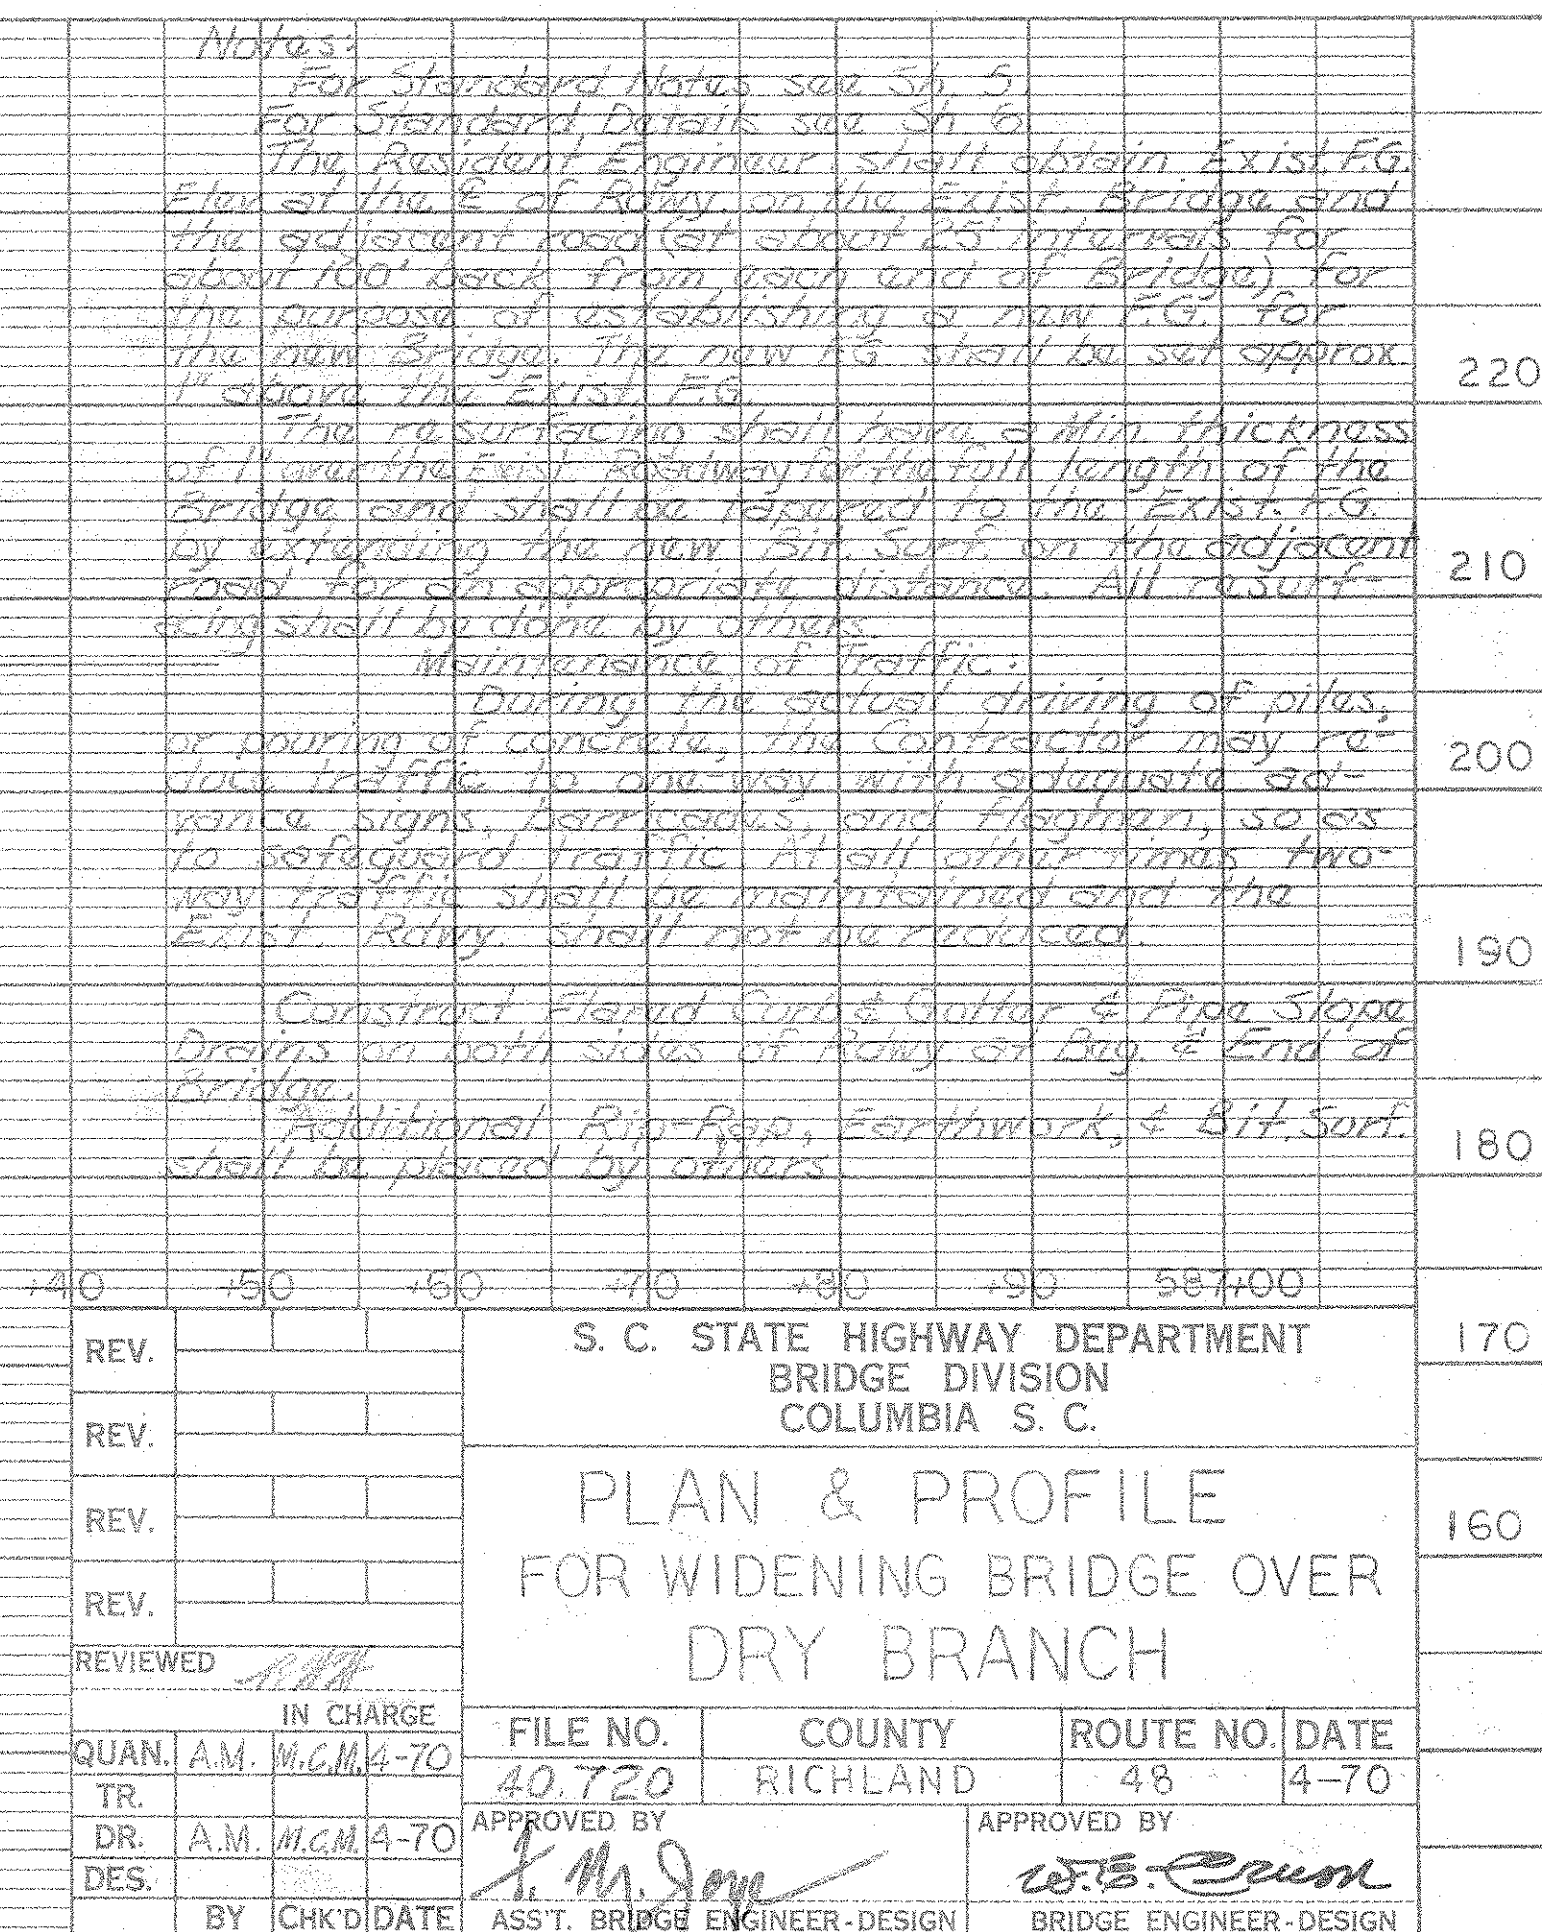 Notes:
For Standard Notes see Sh. 5.
For Standard Details see Sh 6
The Resident Engineer shall obtain Exist. F.G.
Elev at the ℄ of Rdwy. on the Exist. Bridge and
the adjacent road (at about 25' intervals for
about 100' back from each end of Bridge) for
the purpose of establishing a new F.G. for
the new Bridge. The new FG shall be set approx.
1" above the Exist. F.G.
The resurfacing shall have a Min. thickness
of 1" over the Exist. Roadway for the full length of the
Bridge and shall be tapered to the Exist. F.G.
by extending the new Bit. Surf. on the adjacent
road for an appropriate distance. All resurf-
acing shall be done by others.
Maintenance of Traffic:
During the actual driving of piles,
or pouring of concrete, the Contractor may re-
duce traffic to one-way with adequate ad-
vance signs, barricades, and flagman, so as
to safeguard traffic. At all other times two-
way traffic shall be maintained and the
Exist. Rdwy. shall not be reduced.
Construct Flared Curb & Gutter & Pipe Slope
Drains on both sides of Rdwy at Beg. & End of
Bridge.
Additional Rip-Rap, Earthwork, & Bit. Surf.
shall be placed by others
220
210
200
190
180
170
160
+40 +50 +60 +70 +80 +90 587+00
REV.
REV.
REV.
REV.
REVIEWED
IN CHARGE
QUAN. A.M. M.C.M. 4-70
TR.
DR. A.M. M.C.M. 4-70
DES.
BY CHK'D DATE
S. C. STATE HIGHWAY DEPARTMENT
BRIDGE DIVISION
COLUMBIA S. C.
PLAN & PROFILE
FOR WIDENING BRIDGE OVER
DRY BRANCH
FILE NO. COUNTY ROUTE NO. DATE
40.720 RICHLAND 48 4-70
APPROVED BY APPROVED BY
ASS'T. BRIDGE ENGINEER-DESIGN BRIDGE ENGINEER-DESIGN